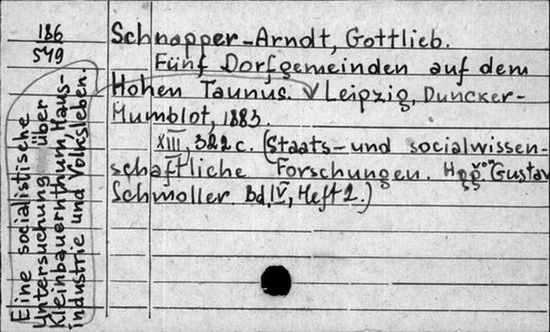 186
549
Schnapper-Arndt, Gottlieb.
Fünf Dorfgemeinden auf dem
Hohen Taunus. Leipzig, Duncker-
Humblot, 1883.
XIII, 322 c. (Staats- und socialwissen-
schaftliche Forschungen. von Gustav
Schmoller. Bd. IV, Heft 2.)
Eine socialistische
Untersuchung über
Kleinbauernthum, Haus-
industrie und Volksleben.